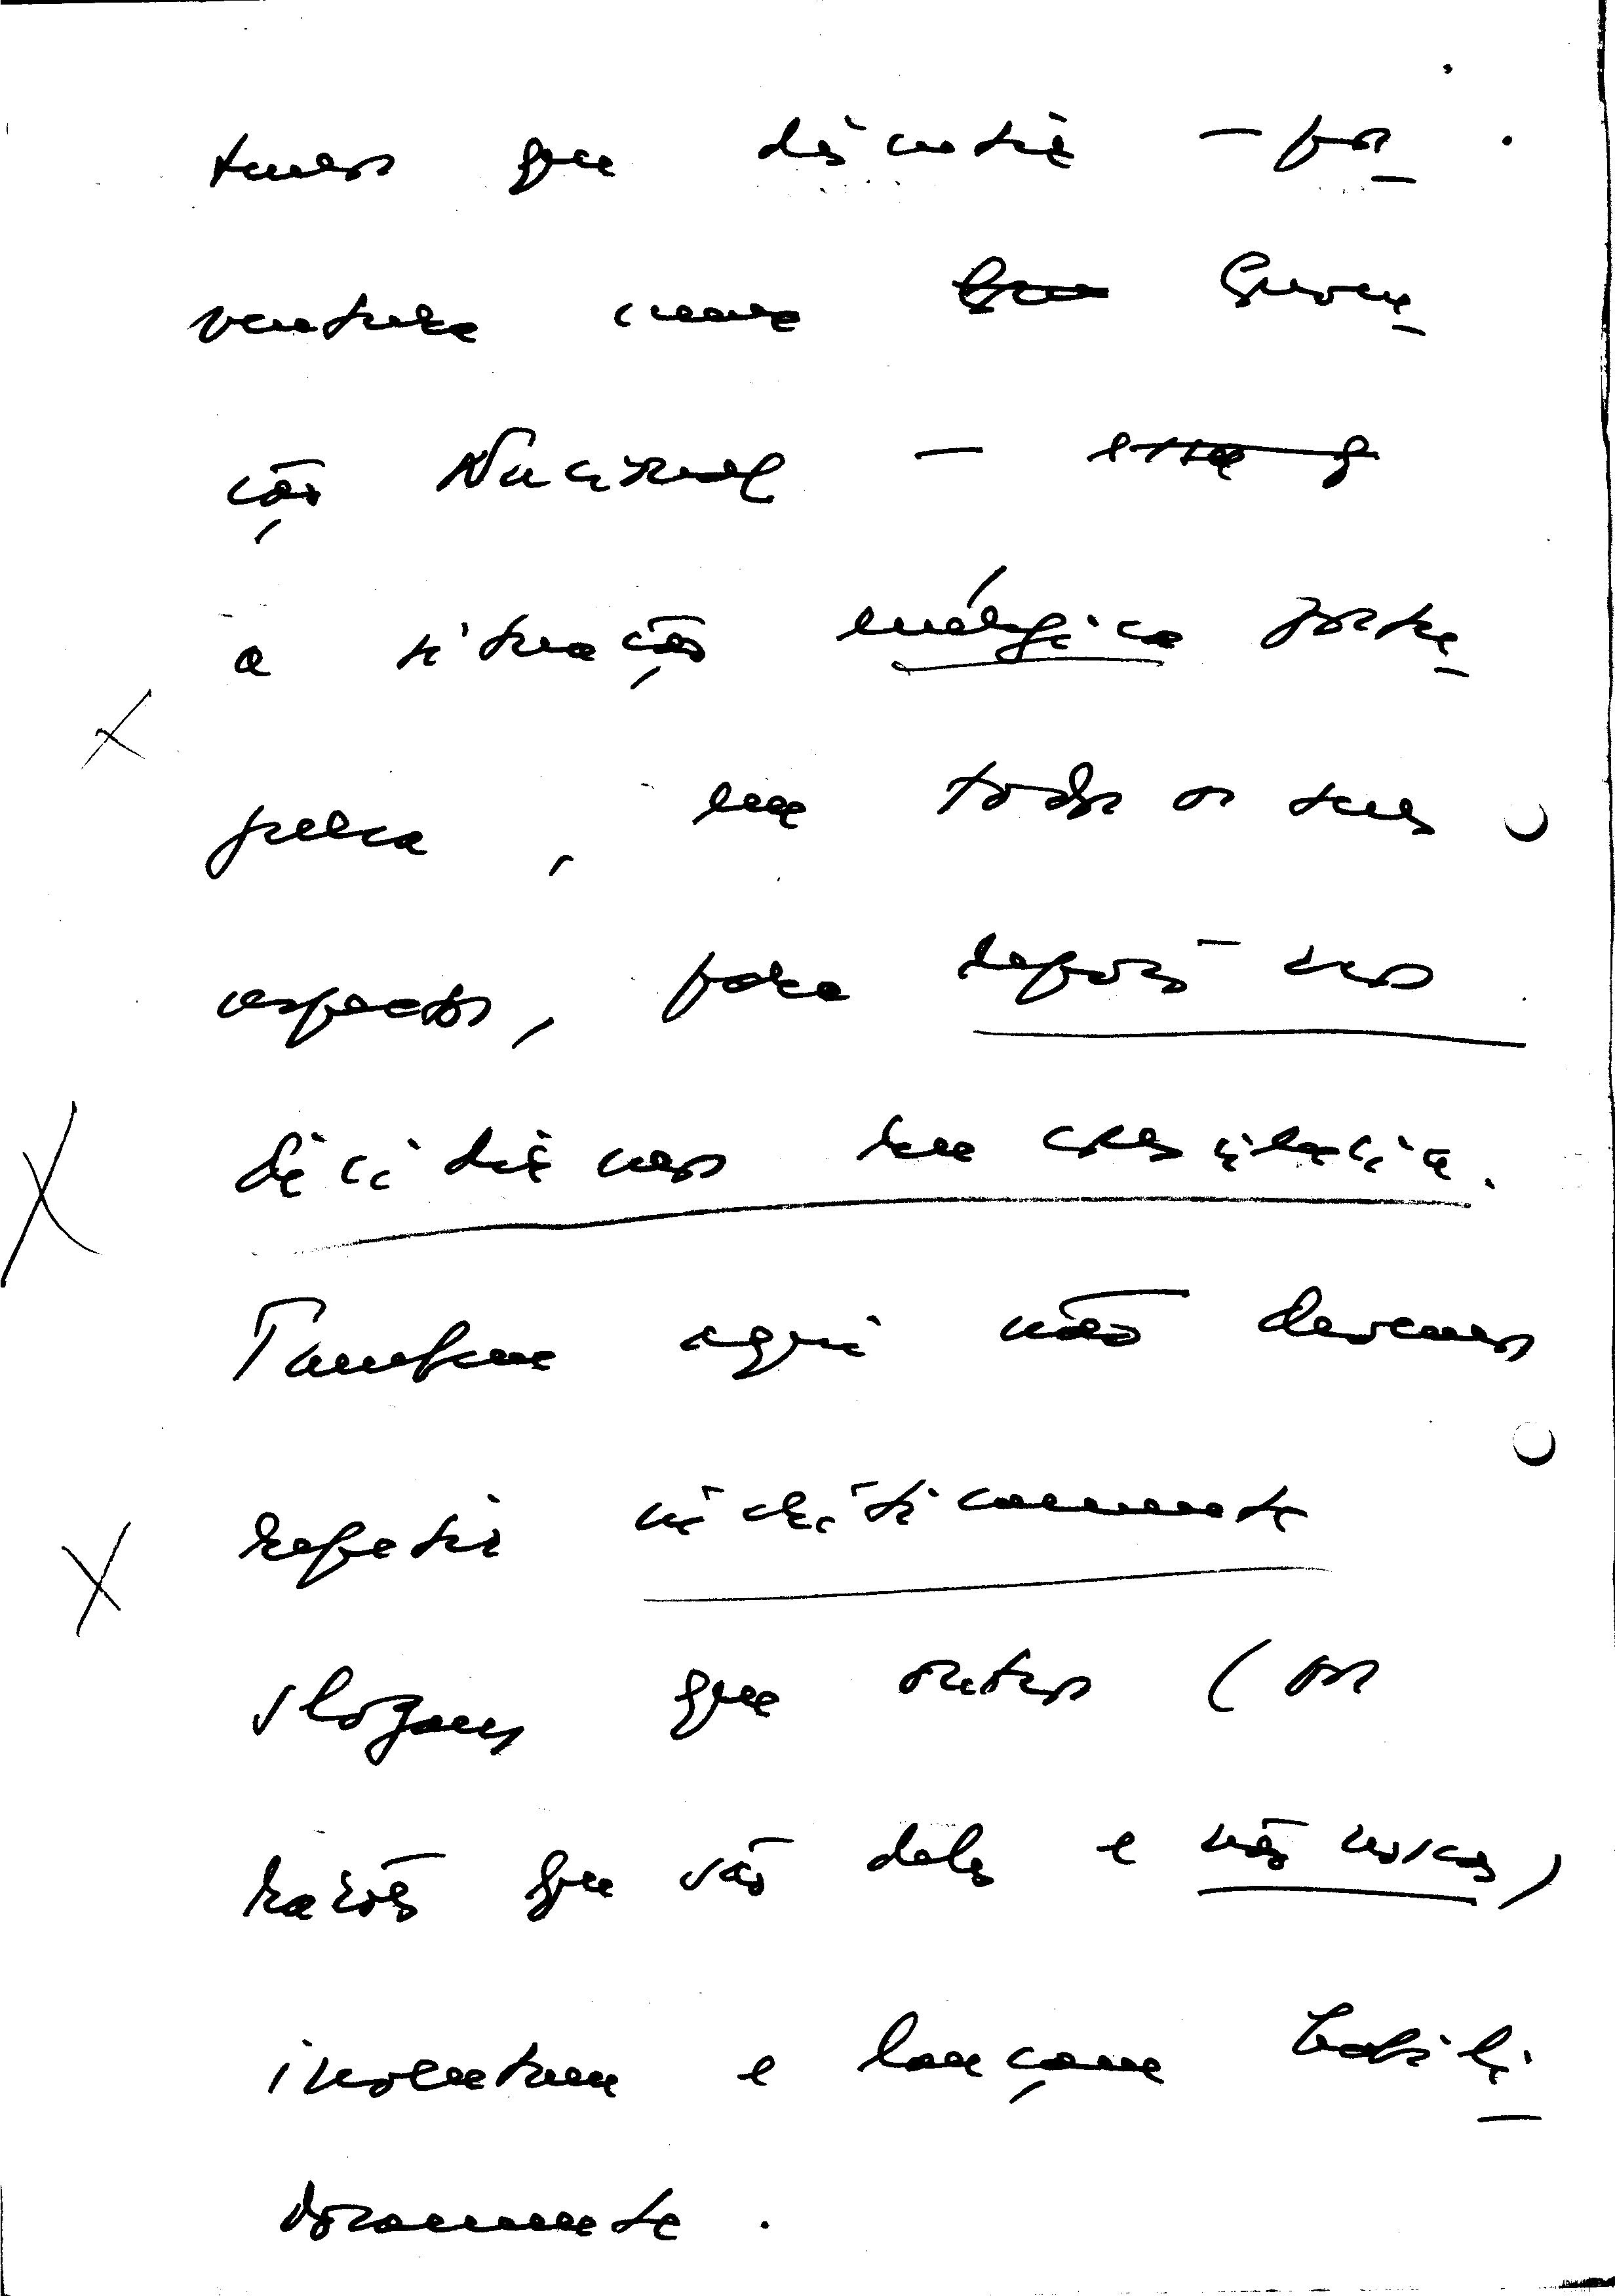 temos que discutir - por
ventura numa Conven
ção Nacional -
a situação enérgica portu
guesa, em todos os seus
aspectos, para depois - nos
decidirmos em consciência.
Tambem aqui não devemos
repetir acriticamente
slogans que outros (os
razões que são deles e não nossas)
inventam e lançam habili
dosamente.